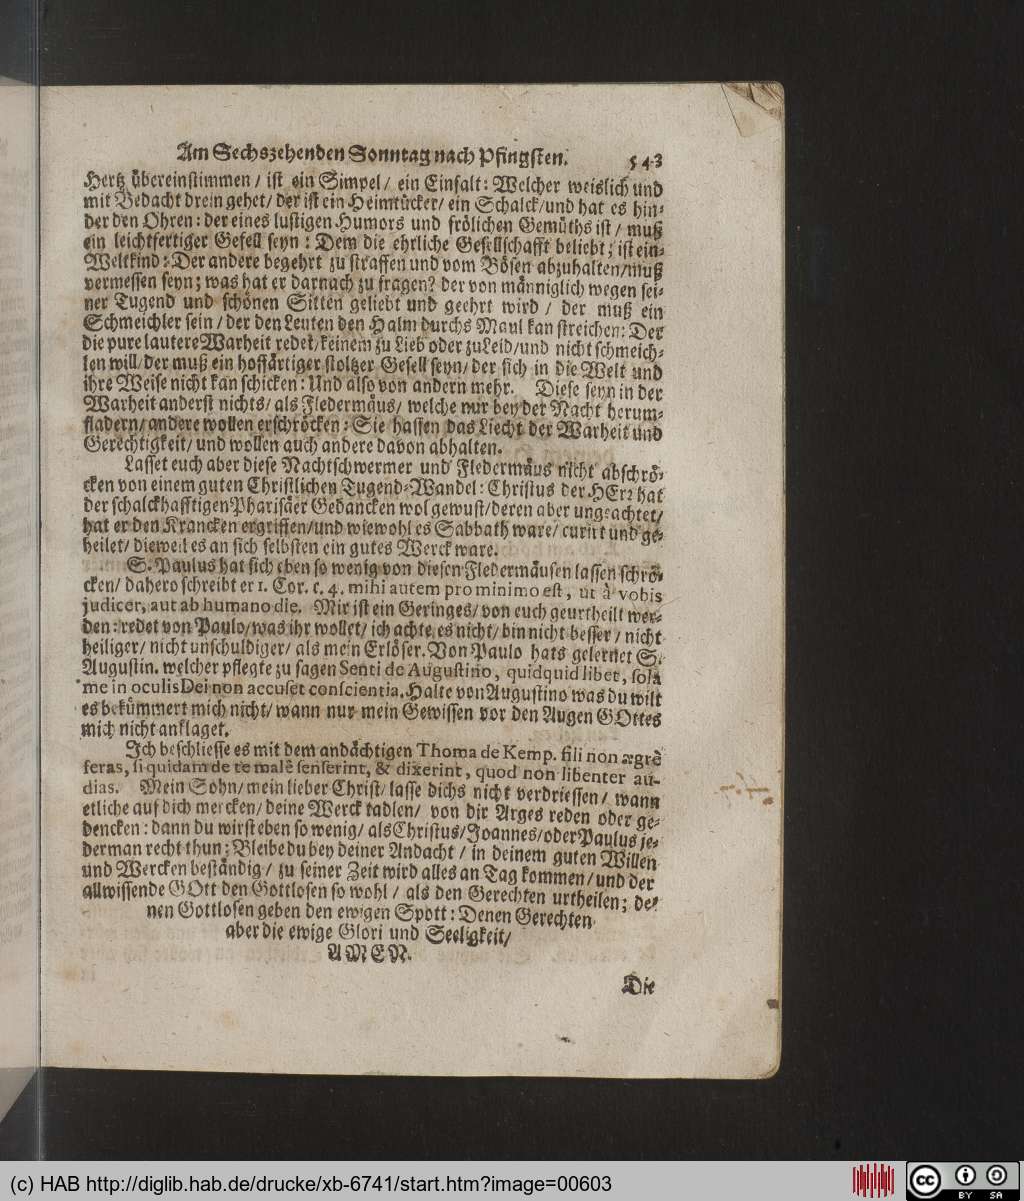 Am Sechszehenden Sonntag nach Pfingsten. 543
Hertz übereinstimmen / ist ein Simpel / ein Einfalt: Welcher weislich und
mit Bedacht drein gehet / der ist ein Heimtücker / ein Schalck / und hat es hin-
der den Ohren: der eines lustigen Humors und frölichen Gemüths ist / muß
ein leichtfertiger Gesell seyn: Dem die ehrliche Gesellschafft beliebt; ist ein-
Weltkind: Der andere begehrt zu straffen und vom Bösen abzuhalten / muß
vermessen seyn; was hat er darnach zu fragen? der von männiglich wegen sei-
ner Tugend und schönen Sitten geliebt und geehrt wird / der muß ein
Schmeichler sein / der den Leuten den Halm durchs Maul kan streichen: Der
die pure lautere Warheit redet / keinem zu Lieb oder zu Leid / und nicht schmeich-
len will / der muß ein hoffärtiger stoltzer Gesell seyn / der sich in die Welt und
ihre Weise nicht kan schicken: Und also von andern mehr. Diese seyn in der
Warheit anderst nichts / als Fledermäus / welche nur bey der Nacht herum-
fladern / andere wollen erschröcken: Sie hassen das Liecht der Warheit und
Gerechtigkeit / und wollen auch andere davon abhalten.
Lasset euch aber diese Nachtschwermer und Fledermäus nicht abschrö-
cken von einem guten Christlichen Tugend-Wandel: Christus der HErr hat
der schalckhafftigen Pharisäer Gedancken wol gewust / deren aber ungeachtet /
hat er den Krancken ergriffen / und wiewohl es Sabbath ware / curirt und ge-
heilet / dieweil es an sich selbsten ein gutes Werck ware.
S. Paulus hat sich eben so wenig von diesen Fledermäusen lassen schrö-
cken / dahero schreibt er 1. Cor. c. 4. mihi autem pro minimo est, ut à vobis
judicer, aut ab humano die. Mir ist ein Geringes / von euch geurtheilt wer-
den: redet von Paulo / was ihr wollet / ich achte es nicht / bin nicht besser / nicht
heiliger / nicht unschuldiger / als mein Erlöser. Von Paulo hats gelernet S.
Augustin. welcher pflegte zu sagen Senti de Augustino, quidquid libet, sola
me in oculis Dei non accuset conscientia. Halte von Augustino was du wilt
es bekümmert mich nicht / wann nur mein Gewissen vor den Augen GOttes
mich nicht anklaget.
Ich beschliesse es mit dem andächtigen Thoma de Kemp. fili non ægrè
feras, si quidam de te malè senserint, & dixerint, quod non libenter au-
dias. Mein Sohn / mein lieber Christ / lasse dichs nicht verdriessen / wann
etliche auf dich mercken / deine Werck tadlen / von dir Arges reden oder ge-
dencken: dann du wirst eben so wenig / als Christus / Joannes / oder Paulus je-
derman recht thun; Bleibe du bey deiner Andacht / in deinem guten Willen
und Wercken beständig / zu seiner Zeit wird alles an Tag kommen / und der
allwissende GOtt den Gottlosen so wohl / als den Gerechten urtheilen; de-
nen Gottlosen geben den ewigen Spott: Denen Gerechten
aber die ewige Glori und Seeligkeit /
AMEN.
Die
(c) HAB http://diglib.hab.de/drucke/xb-6741/start.htm?image=00603
cc BY SA